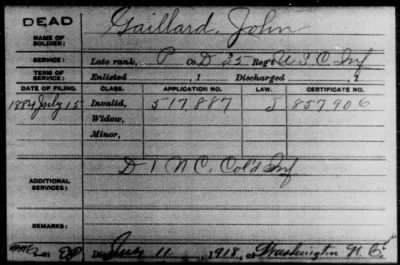 DEAD
NAME OF SOLDIER: Gaillard, John
SERVICE: Late rank, P Co. D 35 Reg't U S C Inf
TERM OF SERVICE: Enlisted , 1 Discharged , 1
DATE OF FILING. CLASS. APPLICATION NO. LAW. CERTIFICATE NO.
1884 July 15 Invalid, 517,887 J 857,906
Widow,
Minor,
ADDITIONAL SERVICES: D 1 N C, Col'd Inf
REMARKS:
Died July 11, 1918, at Washington N. C.